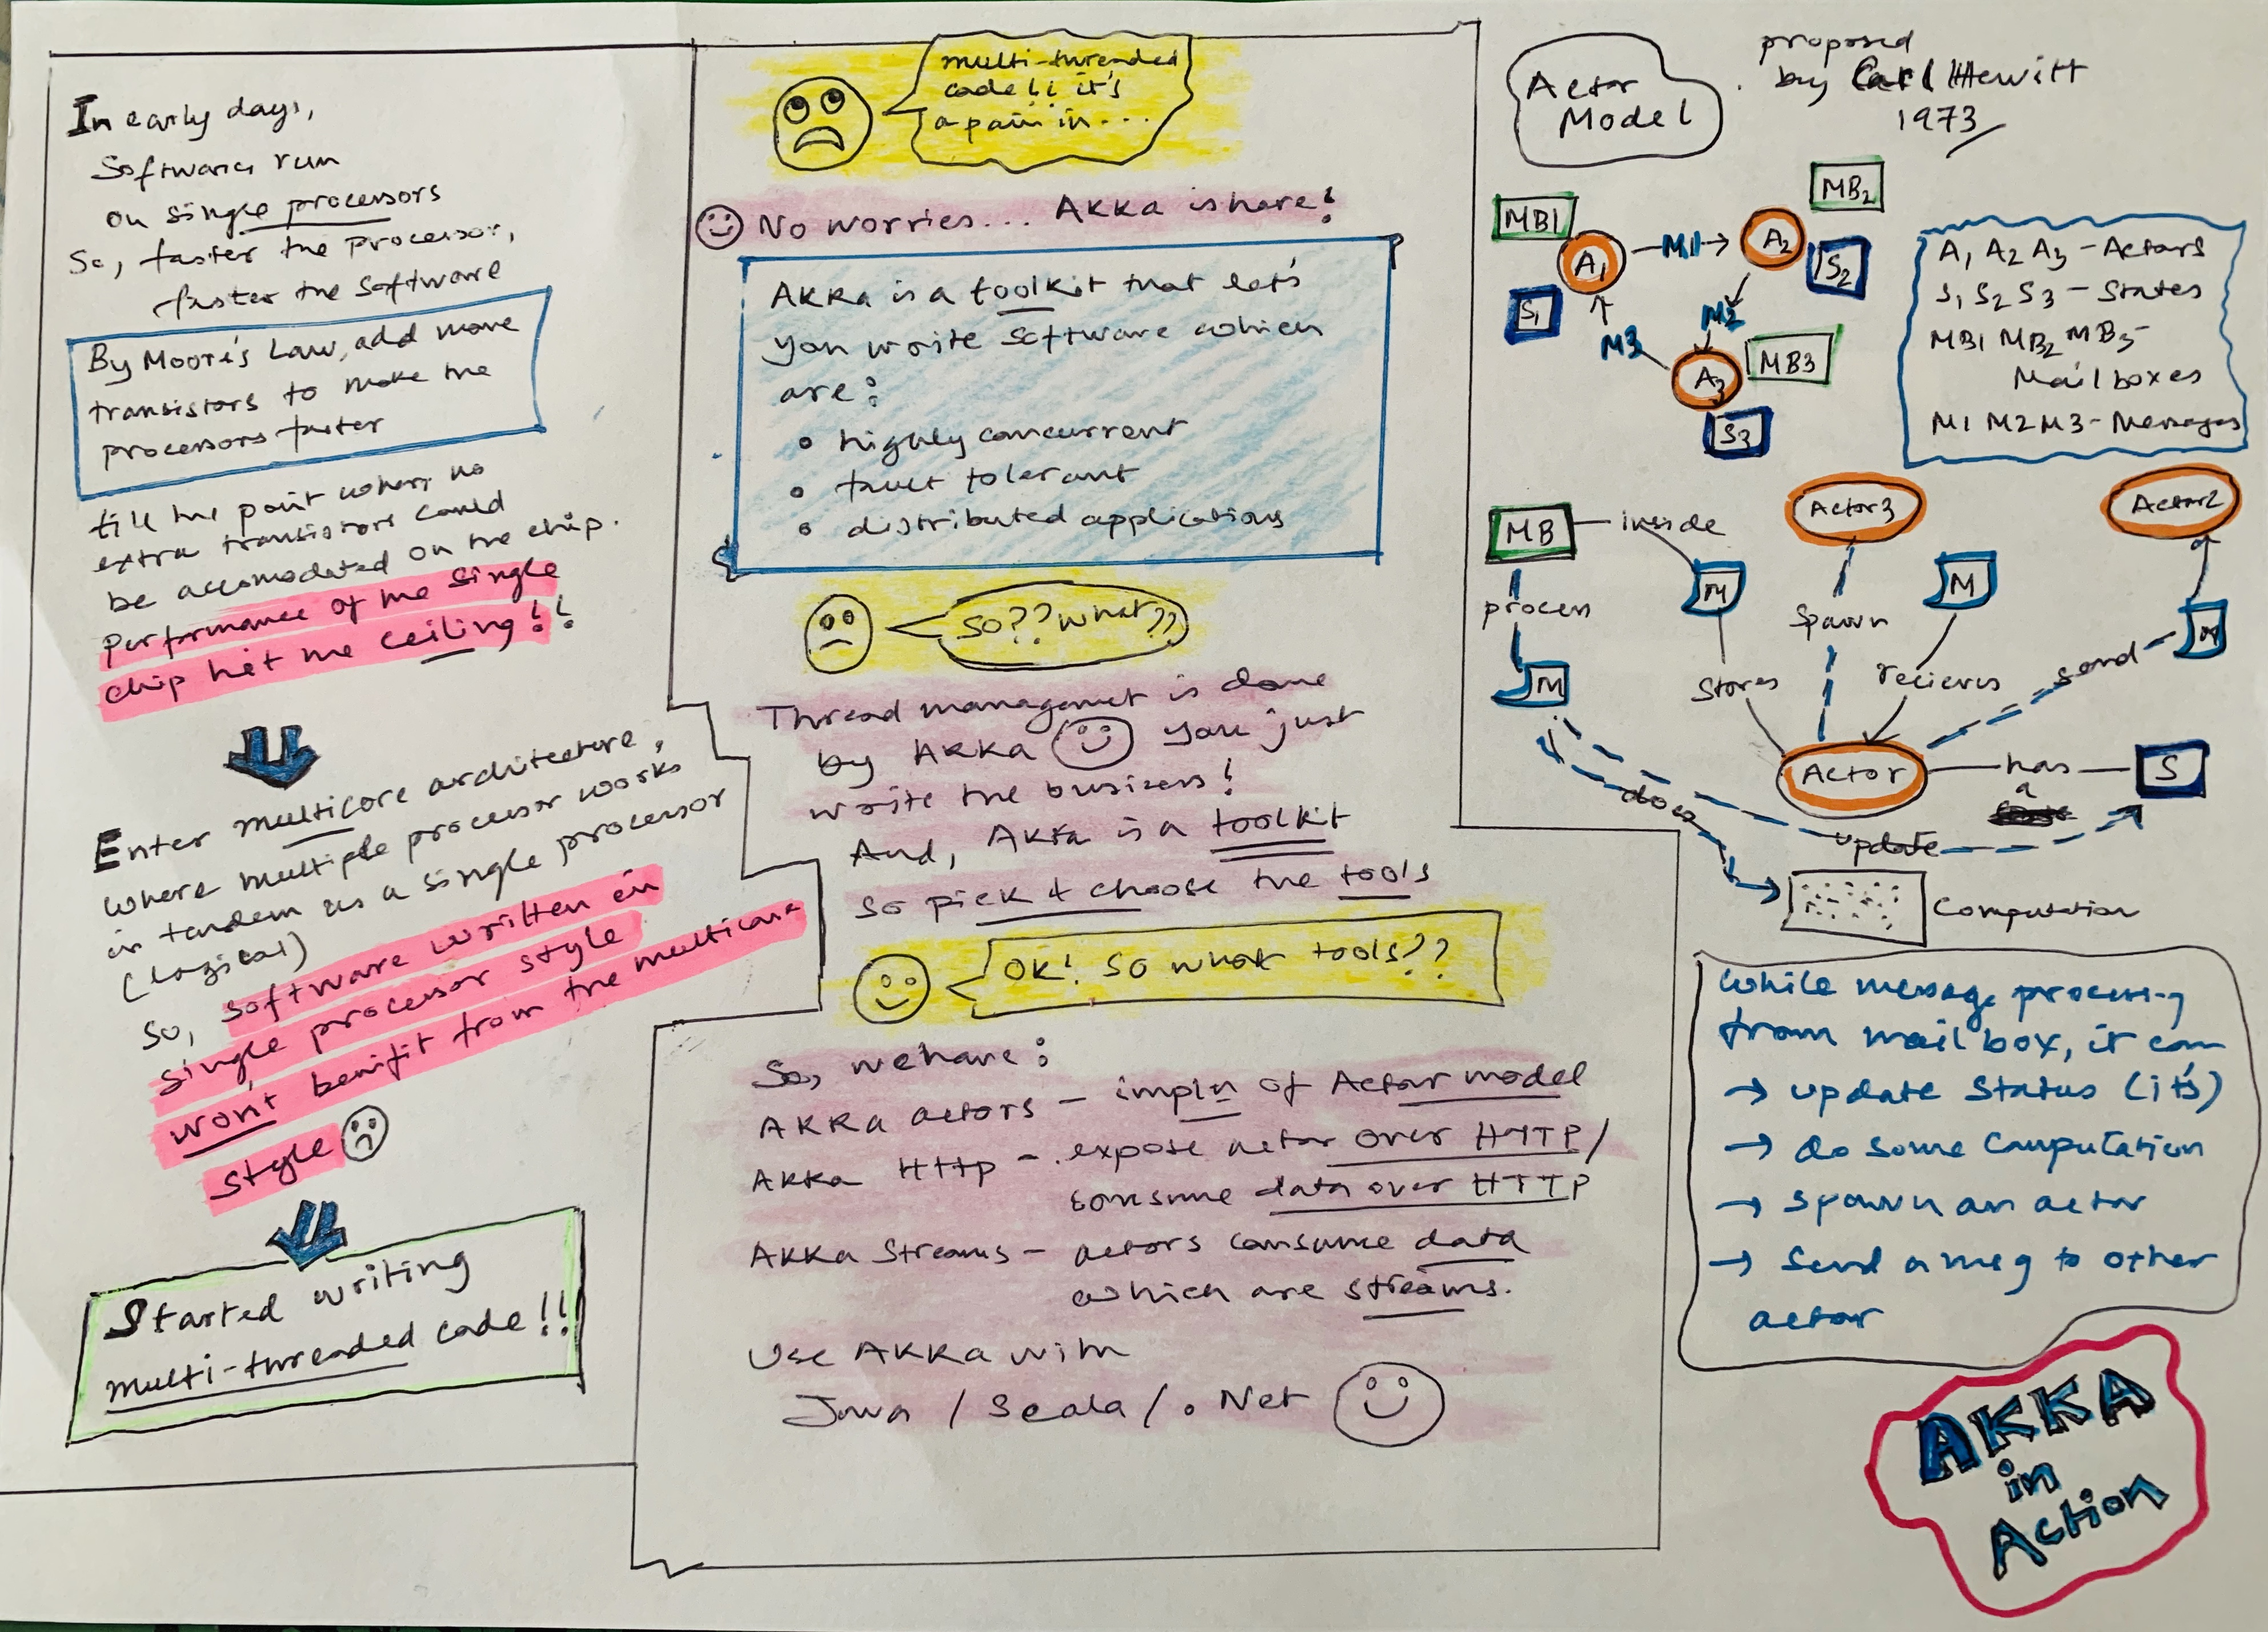 In early days,
Softwares run
on single processors
So, faster the processor,
faster the software
By Moore's Law, add more
transistors to make the
processors faster
till the point where no
extra transistors could
be accomodated on the chip.
performance of the single
chip hit the ceiling!!
Enter multicore architecture,
where multiple processor works
in tandem as a single processor
(logical)
So, software written in
single processor style
won't benifit from the multicore
style
Started writing
multi-threaded code!!
multi-threaded
code!! it's
a pain in...
No worries... AKKA is here!
AKKA is a toolkit that let's
you write software which
are:
highly concurrent
fault tolerant
distributed applications
SO?? what??
Thread managemet is done
by AKKA you just
write the business!
And, Akka is a toolkit
so pick & choose the tools
OK! SO what tools??
So, we have:
AKKA actors - impln of Actor model
AKKA Http - expose actor over HTTP/
consume data over HTTP
AKKA Streams - actors consume data
which are streams.
Use AKKA with
Java / Scala / .Net
Actor
Model
proposed
by Carl Hewitt
1973
MB1
MB2
A1
M1
A2
S2
S1
M3
M2
A3
MB3
S3
A1 A2 A3 - Actors
S1 S2 S3 - States
MB1 MB2 MB3 -
Mailboxes
M1 M2 M3 - Messages
MB
inside
Actor3
Actor2
process
M
M
M
M
spawn
send
stores
recieves
Actor
has
a
S
does
update
Computation
While message processing
from mailbox, it can
→ update Status (it's)
→ do some Computation
→ spawn an actor
→ Send a msg to other
actor
AKKA
in
Action